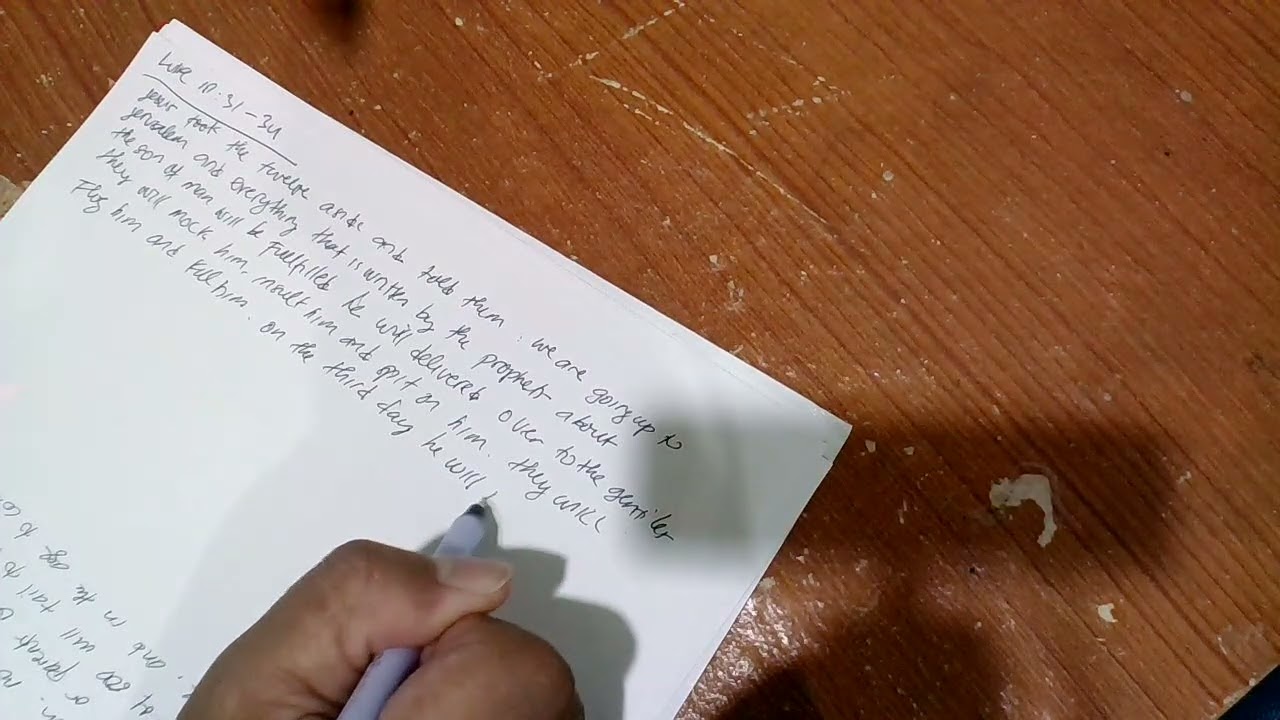 Luke 18:31-34
Jesus took the twelve aside and told them: we are going up to
Jerusalem and everything that is written by the prophets about
the son of man will be Fulfilled he will delivered over to the gentiles
they will mock him, insult him and spit on him. they will
Flog him and kill him. on the third day he will
in the age to co
fail to
or parents